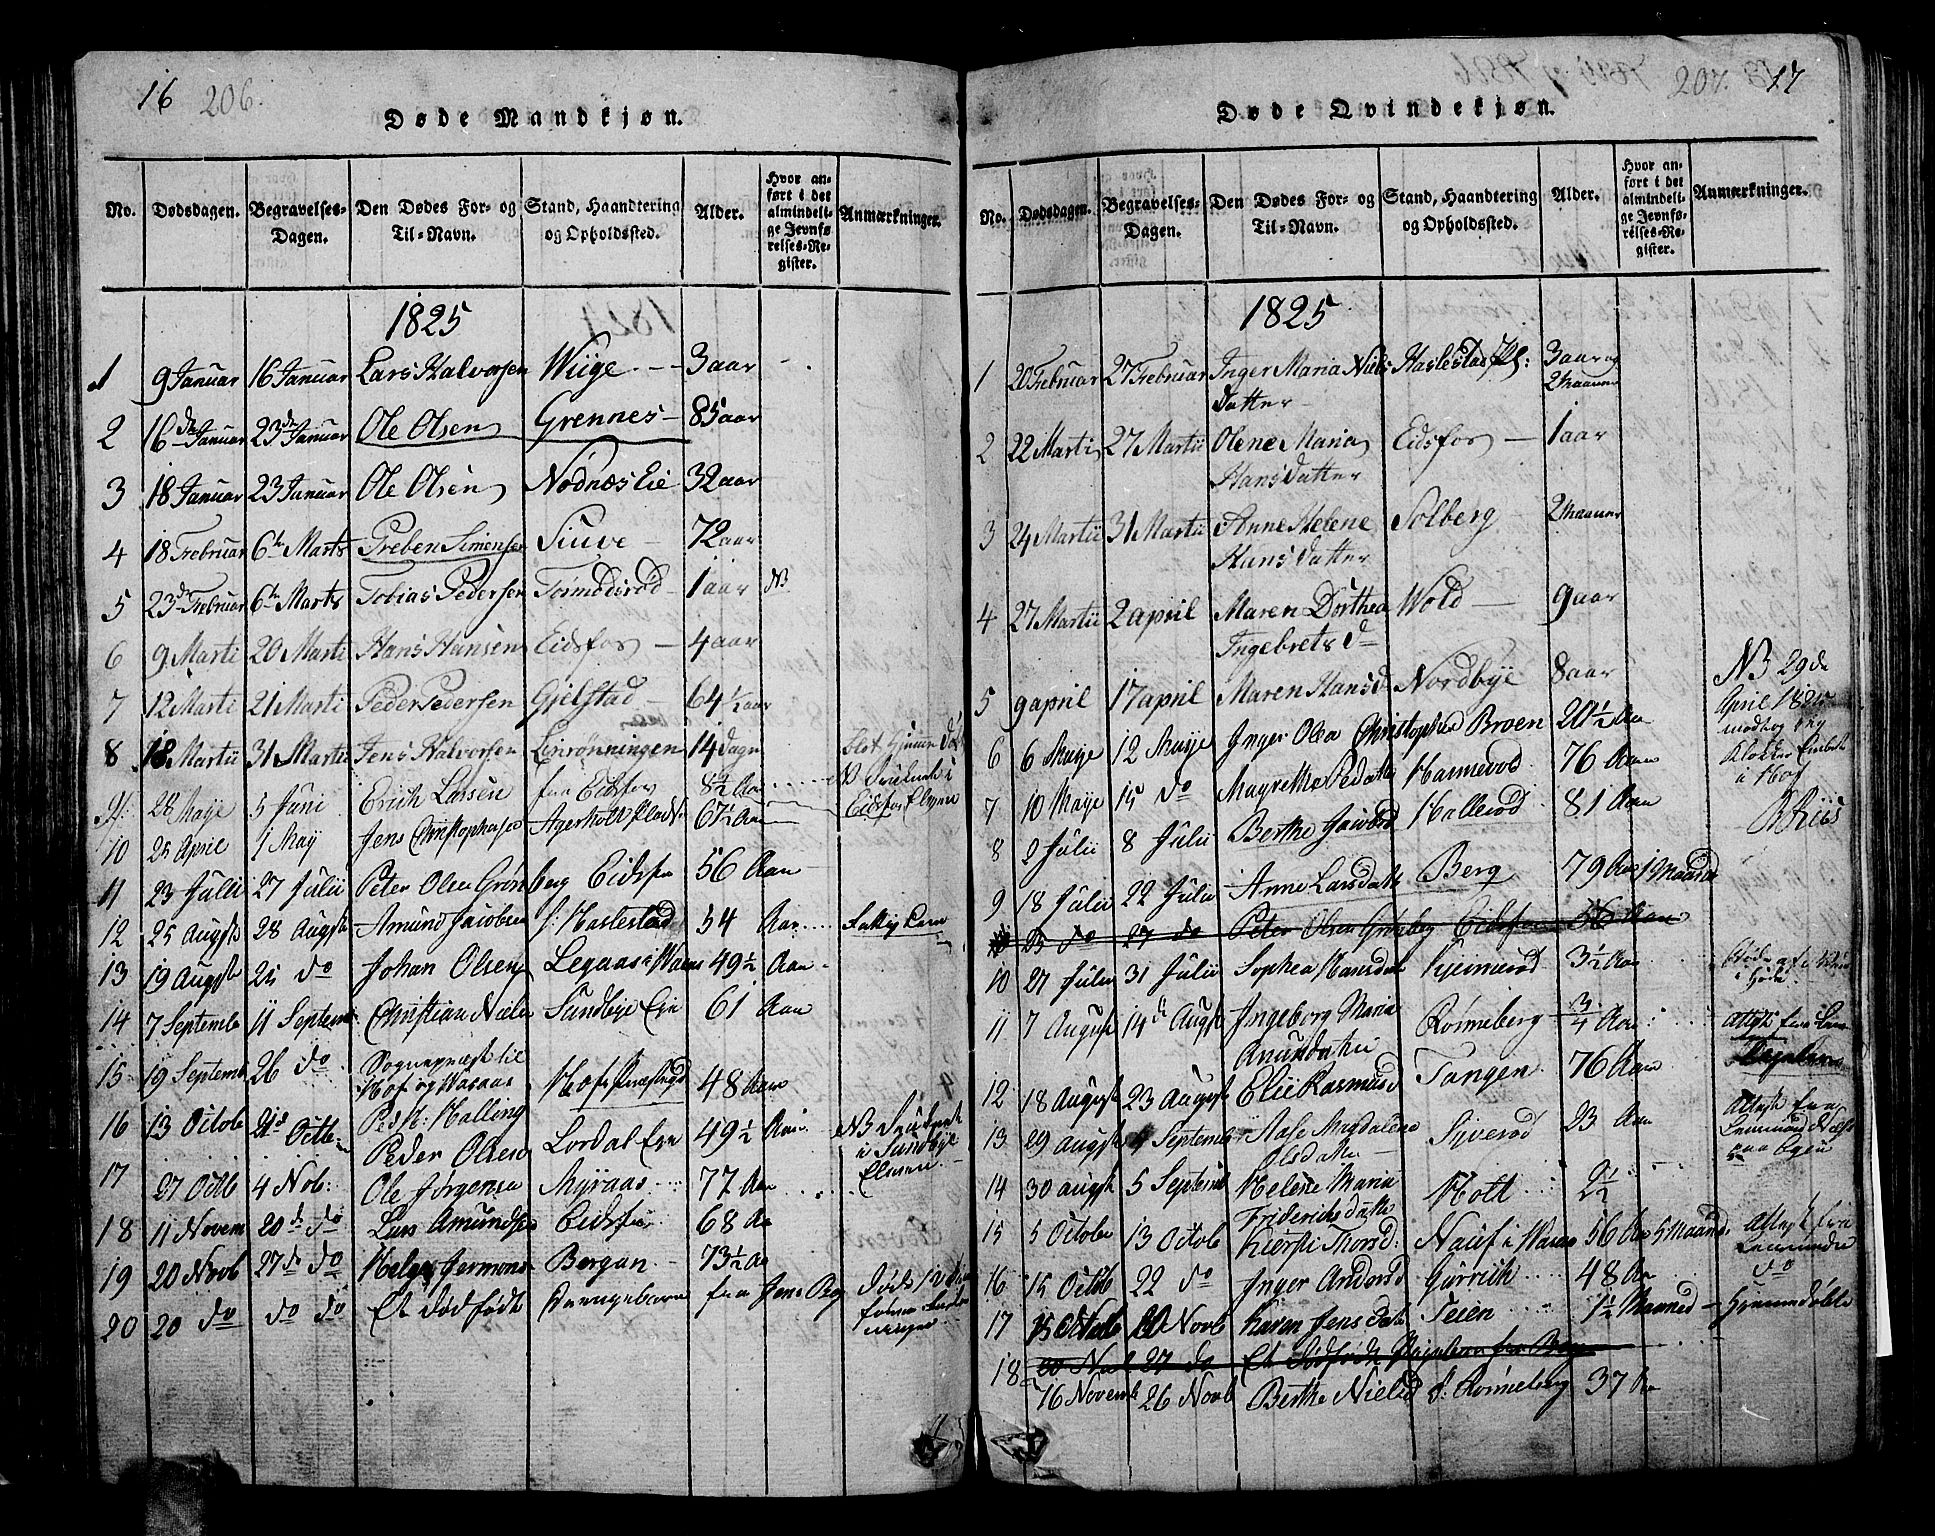 16 206.
Døde Mandkjøn.
No. Dødsdagen. Begravelses-Dagen. Den Dødes For- og Til-Navn. Stand, Haandtering og Opholdssted. Alder. Hvor anført i det almindelige Jevnførelses-Register. Anmærkninger.
1825
1 9 Januar 16 Januar Lars Halvorsen Wiige 3 aar
2 16de Januar 23de Januar Ole Olsen Grennes 85 aar
3 18 Januar 23 Januar Ole Olsen Nødnæs Eie 32 aar
4 18 Februar 6te Marts Preben Simensen Siuve 72 aar
5 23de Februar 6te Marts Tobias Pedersen Tormodsrød 1 aar NB
6 9 Marti 20 Marti Hans Hansen Eidsfos 4 aar
7 12 Marti 21 Marti Peder Pedersen Gjelstad 64 1/2 aar
8 18 Martii 31 Martii Jens Halvorsen Linrønningen 14 dage
9 28 Maye 5 Juni Erich Larsen fra Eidsfos 8 1/2 Aar
Eidsfos Elven
10 25 April 1 May Jens Christophersen Agerholt Plads 67 1/2 Aar
11 23 Julii 27 Julii Peter Olsen Grønberg Eidsfos 56 Aar
12 25 Augst 28 Augst Amund Jacobsen Haslestad 54 Aar
13 19 Augst 25 do Johan Olsen Legaas i Waas 49 1/2 Aar
14 7 Septemb 11 Septemb Christian Niels Sundbye Eie 61 Aar
15 19 Septemb 26 do Sognepræst til
Hof og Waaas
Ped. H: Halling Hofs Præstegd 48 Aar
16 13 Octob 21de Octb Peder Olsen Lordal Eie 49 1/2 Aar NB
i Sundbye
Elven
17 27 Octb 4 Nob: Ole Jørgensen Myraas 77 Aar
18 11 Novem 20de do Lars Amundsen Eidsfos 68 Aar
19 20 Novb 27de do Helge Jermons Bergan 73 1/2 Aar
20 20 do do do Et dødfødt Drengebarn fra Jens Berg
207. 17
Døde Qvindekjøn.
No. Dødsdagen. Begravelses-Dagen. Den Dødes For- og Til-Navn. Stand, Haandtering og Opholdssted. Alder. Hvor anført i det almindelige Jevnførelses-Register. Anmærkninger.
1825
1 20 Februar 27 Februar Inger Maria Niels Datter Haslestad Pl: 3 aar og 2 Maaner
2 22 Marti 27 Martii Olene Maria Hans Datter Eidsfos 1 aar
3 24 Martii 31 Martii Anne Helene Hans Datter Solberg 2 Maaner
4 27 Martii 2 april Maren Dorthea Ingebrets D Wold 9 aar
5 9 april 17 april Maren Hansd Nordbye 8 aar
NB 29de
April 1825
modtog jeg
Klokker Embedet
i Hof
6 6 Maye 12 Maye Inger Olea Christophersd Broen 20 1/2 Aar
7 10 Maye 15 do Magrethe Pedatter Hannevod 76 Aar
8 2 Julii 8 Julii Berthe Jacobsd Hallerød 81 Aar
9 18 Julii 22 Julii Anne Larsdatter Berg 79 Aar 1 Maaned
23 do 27 do Peter Olsen Grønberg Eidsfos 56 Aar
10 27 Julii 31 Julii Sophea Hansdat Kjimerød 3 1/2 Aar
11 7 August 14de Augst Ingeborg Maria Amundatter Rønneberg 3/4 Aar
Attest fra
12 18 August 23 August Elie Rasmusd Tangen 76 Aar
13 29 Augst 4 Septemb Aase Magdalene Olsdatter Syverød 23 Aar
Attest fra
14 30 Augst 5 Septemb Helene Maria Friderichsdatter Holt 2 1/2
15 5 Octobr 13 Octob Kiersti Thorsd: Nauf i Waaas 56 Aar 5 Maaned
Attest fra
16 15 Octb 22 do Inger Andersd Gurrich 48 Aar do
17 15 Octb 20 Novb Karen Jensdatter Teien 1 1/2 Maaned Hjemmedøbt
20 Novb 27 do Et Dødfødt Pigebarn fra Berg
18 16 Novemb 26 Novb Berthe Nielsd Rønneberg 37 Aar